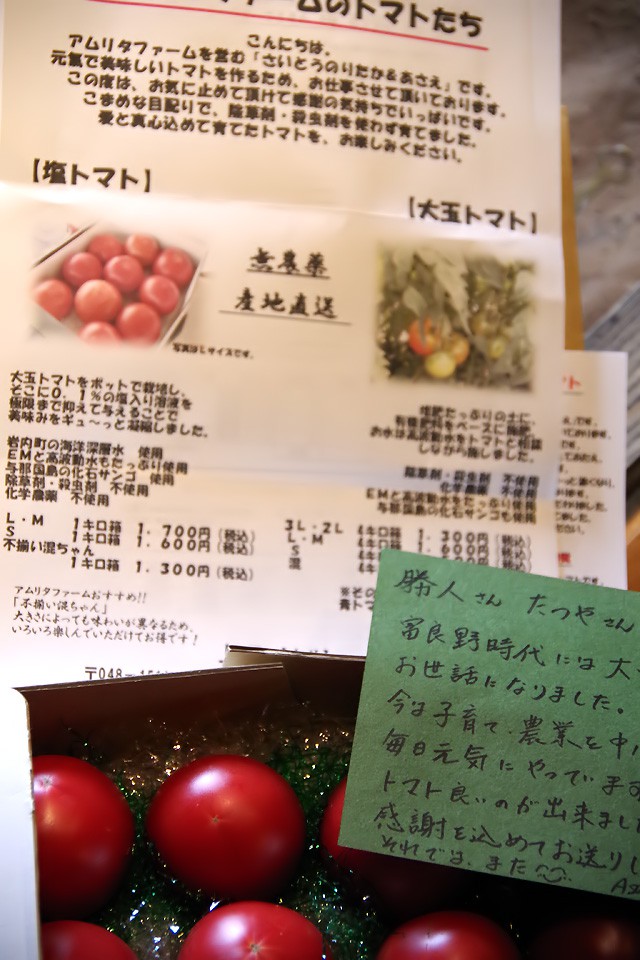 ームのトマトたち
こんにちは。
アムリタファームを営む「さいとうのりたか&あさえ」です。
元氣で美味しいトマトを作るため、お仕事させて頂いております。
この度は、お気に止めて頂けて感謝の気持ちでいっぱいです。
こまめな目配りで、除草剤・殺虫剤を使わず育てました。
愛と真心込めて育てたトマトを、お楽しみください。
【塩トマト】
【大玉トマト】
無農薬
産地直送
写真はLサイズです。
大玉トマトをポットで栽培し、
そこに0.1%の塩入り溶液を
極限まで抑えて与えることで
美味みをギュ〜っと凝縮しました。
岩内町の海洋深層水 使用
EMと高波動水もたっぷり使用
与那国島の化石サンゴ 使用
除草剤・殺虫剤 不使用
化学農薬 不使用
堆肥たっぷりの土に、
有機肥料をベースに施肥。
お水は高波動水をトマトと相談
しながら施しました。
除草剤・殺虫剤 不使用
化学農薬 不使用
EMと高波動水をたっぷり使用
与那国島の化石サンゴも使用
L・M 1キロ箱 1.700円(税込)
S 1キロ箱 1.600円(税込)
不揃い混ちゃん
1キロ箱 1.300円(税込)
3L・2L 4キロ箱 1.300円(税込)
L・M 4キロ箱 1.600円(税込)
S
混
アムリタファームおすすめ!!
「不揃い混ちゃん」
大きさによっても味わいが異なるため、
いろいろ楽しんでいただけてお得です!
※その
青トマ
〒048-
勝人さん たつやさん
富良野時代には大
お世話になりました。
今は子育て、農業を中
毎日元気にやってます
トマト良いのが出来まし
感謝を込めてお送りし
それでは、また